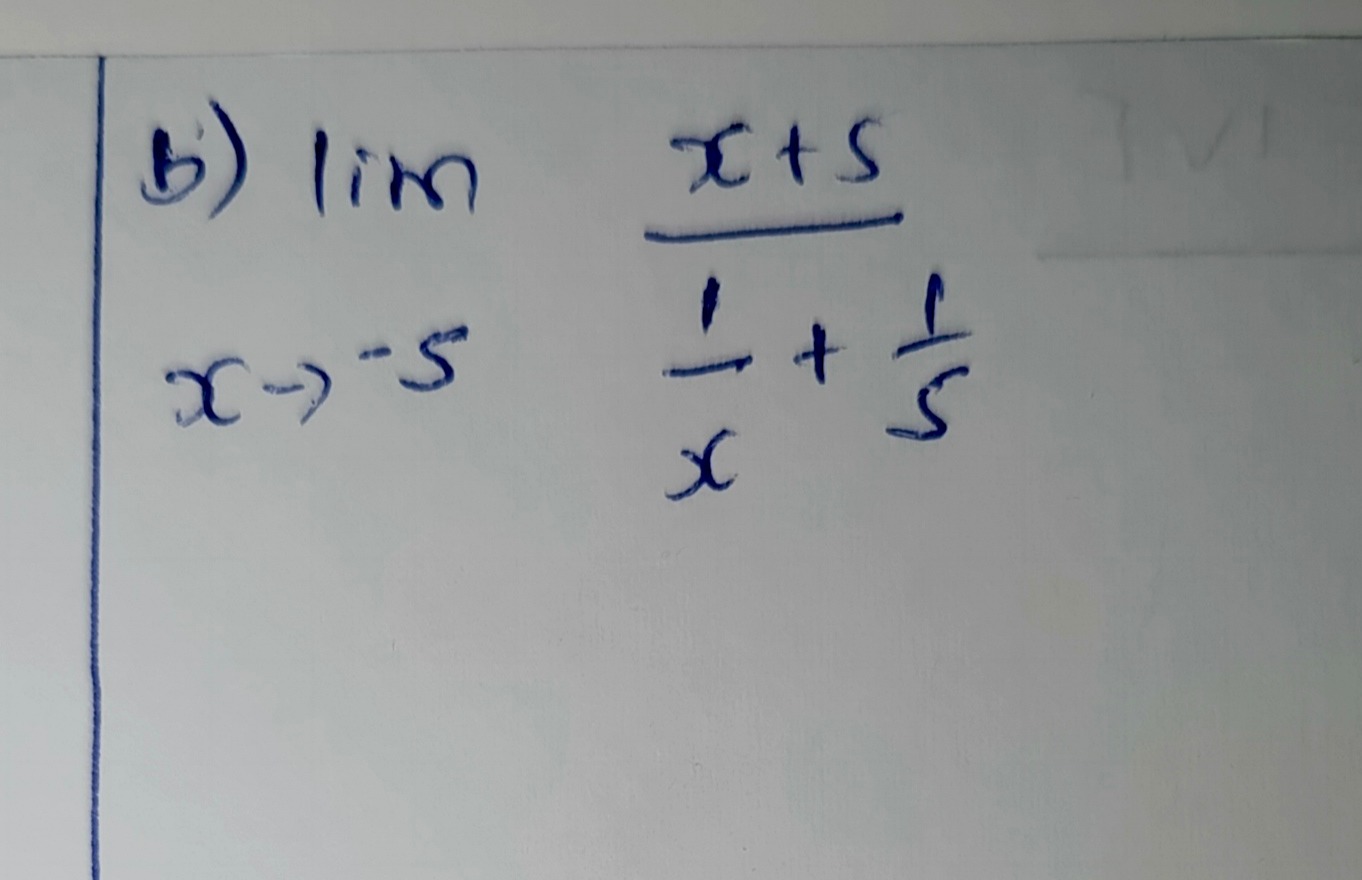 b) lim x+5
x→ -5 1/x + 1/5